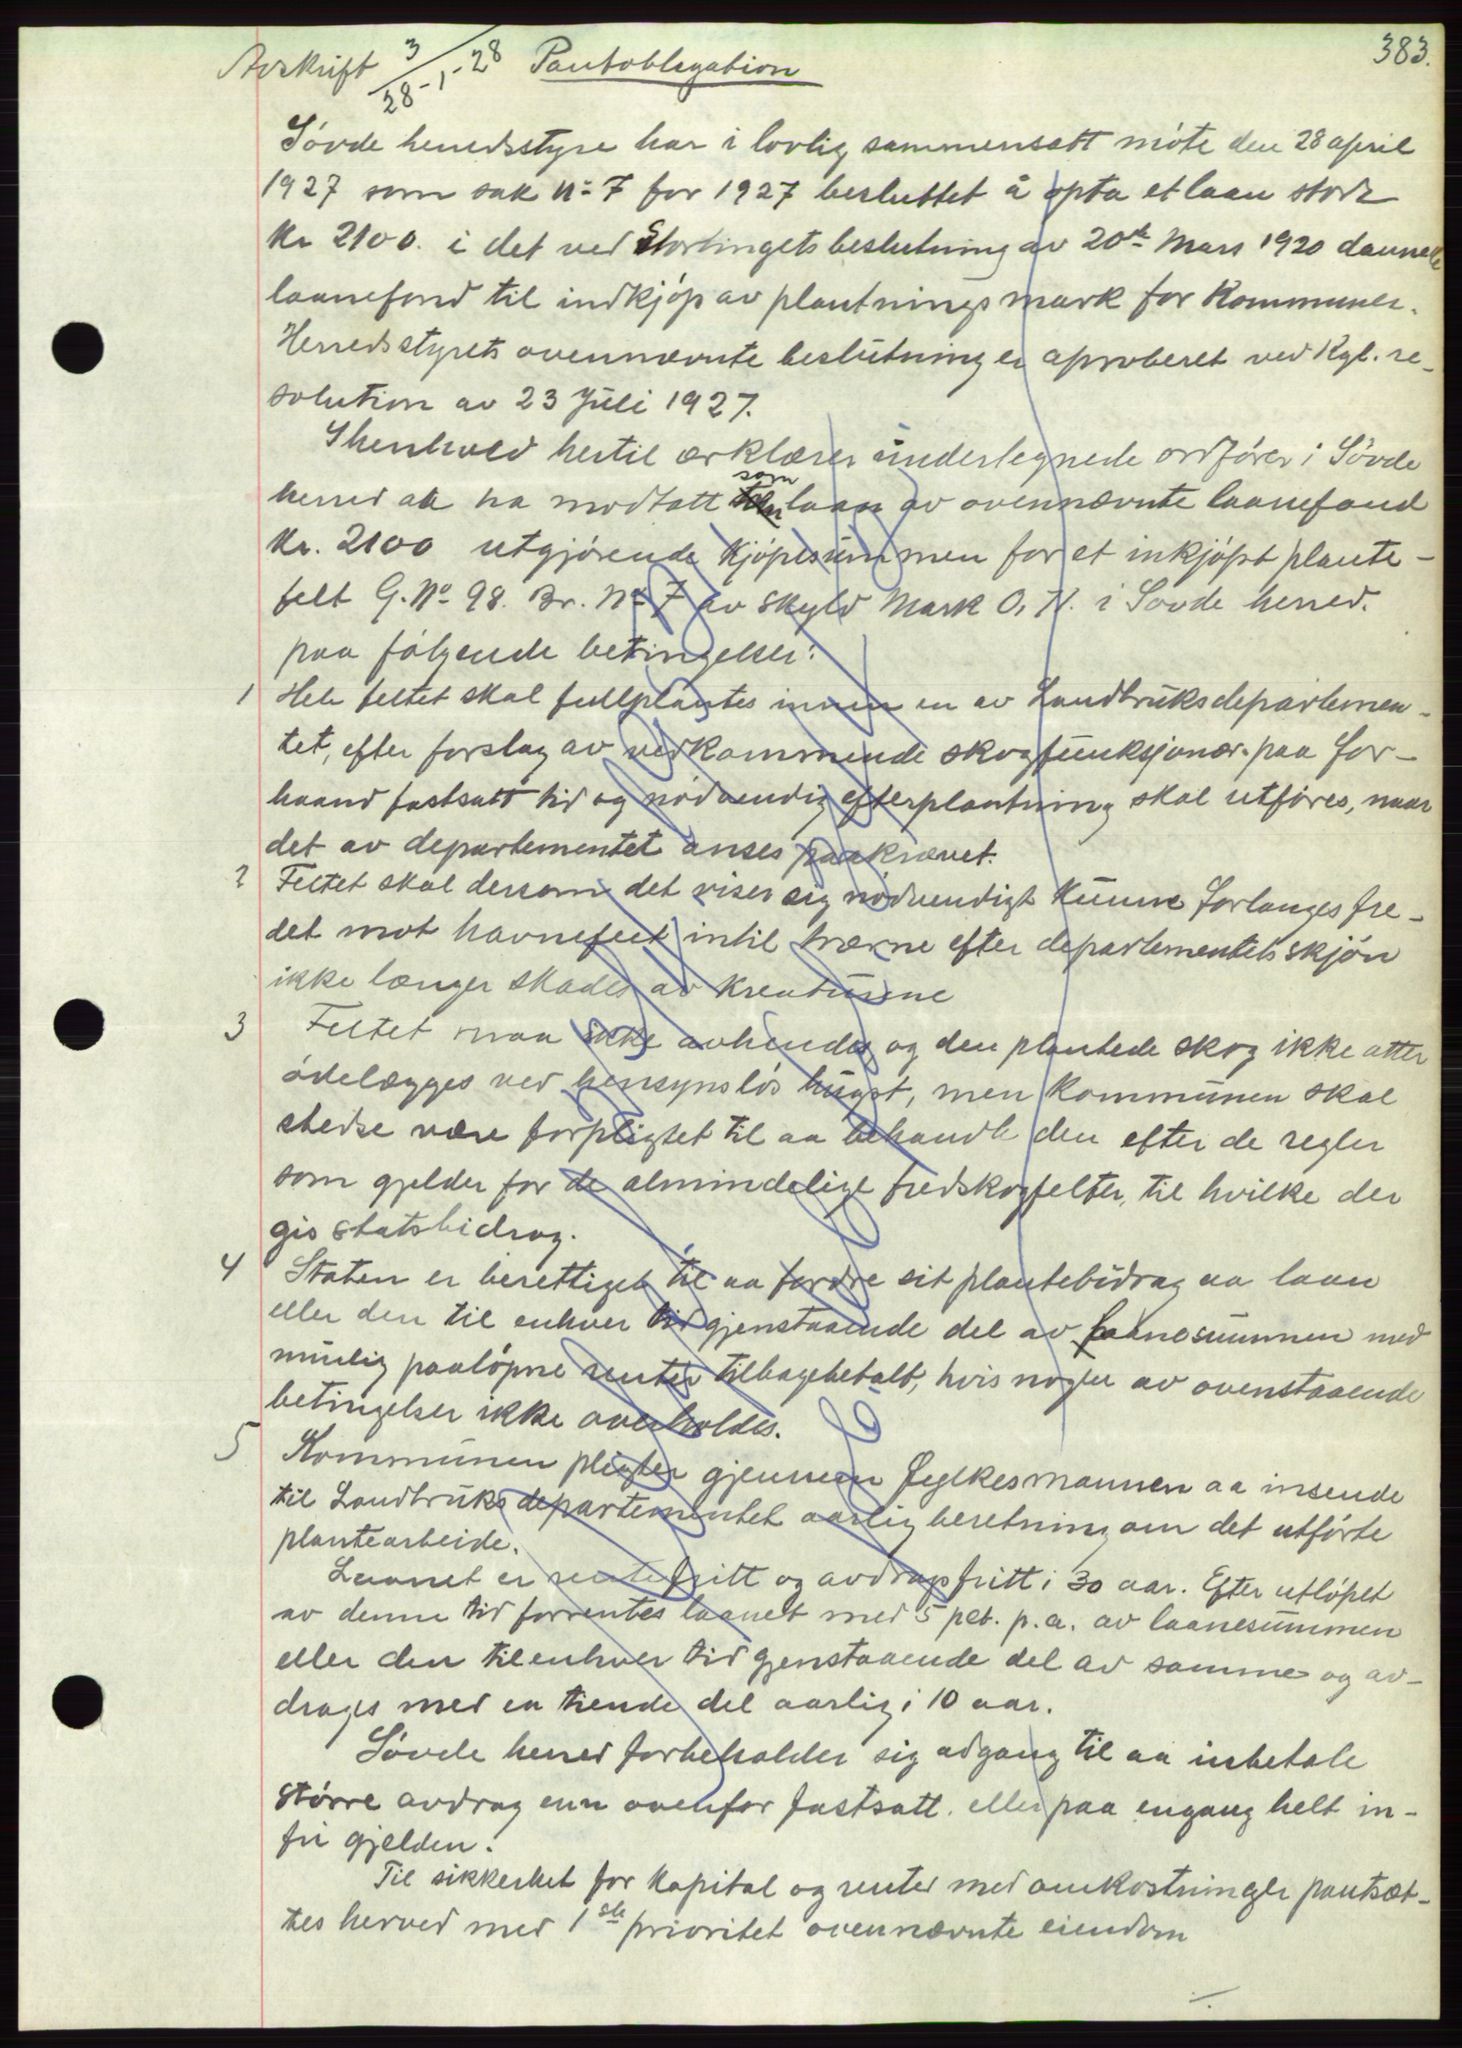 383.
Avskrift 3/28-1-28 Pantoblegation
Sövde herredsstyre har i lovlig sammensatt möte den 28 april
1927 som sak No 7 for 1927 besluttet å opta et laan stort
kr 2100. i det ved Stortingets beslutning av 20de Mars 1920 dannede
laanefond til indkjöp av plantningsmark for kommuner.
Herredsstyrets ovennævnte beslutning er aproberet ved Kgl. re-
solution av 23 Juli 1927.
I henhold hertil ærklærer undertegnede ordförer i Sövde
herred at ha modtatt som laan av ovennævnte laanefond
kr. 2100 utgjörende kjöpesummen for et inkjöpt plante-
felt G. No 98. Br. No 7 av skyld Mark 0, N. i Sövde herred.
paa fölgende betingelser:
1 Hele feltet skal fullplantes innen en av Landbruksdepartemen-
tet, efter forslag av vedkommende skogfunksjonær paa for-
haand fastsatt tid og nödvendig efterplantning skal utföres, naar
det av departementet anses paakrævet.
2 Feltet skal dersom det viser sig nödvendigt kunne forlanges fre-
det mot havnefeet intil trærne efter departementets skjön
ikke længer skades av kreaturene
3 Feltet maa ikke avhendes og den plantede skog ikke atter
ödelægges ved hensynslös hugst, men kommunen skal
stedse være forpligtet til aa behandle den efter de regler
som gjelder for de almindelige fredskogfelter, til hvilke der
gis statsbidrag.
4 Staten er berettiget til aa fordre sit plantebidrag aa laan
eller den til enhver tid gjenstaaende del av laanesummen med
mulig paalöpne renter tilbagebetalt, hvis nogler av ovenstaaende
betingelser ikke overholdes.
5 Kommunen pligter gjennem Fylkesmannen aa insende
til Landbruksdepartementet aarlig beretning om det utförte
plantearbeide.
Laanet er rentefritt og avdragsfritt i 30 aar. Efter utlöpet
av denne tid forrentes laanet med 5 pct. p.a. av laanesummen
eller den tilenhver tid gjenstaaende del av samme og av-
drages med en tiende del aarlig i 10 aar.
Sövde herred forbeholder sig adgang til aa inbetale
större avdrag enn ovenfor fastsatt. eller paa engang helt in-
fri gjelden.
Til sikkerhet for kapital og renter med omkostninger pantsæt-
tes herved med 1ste prioritet ovennævnte eiendom